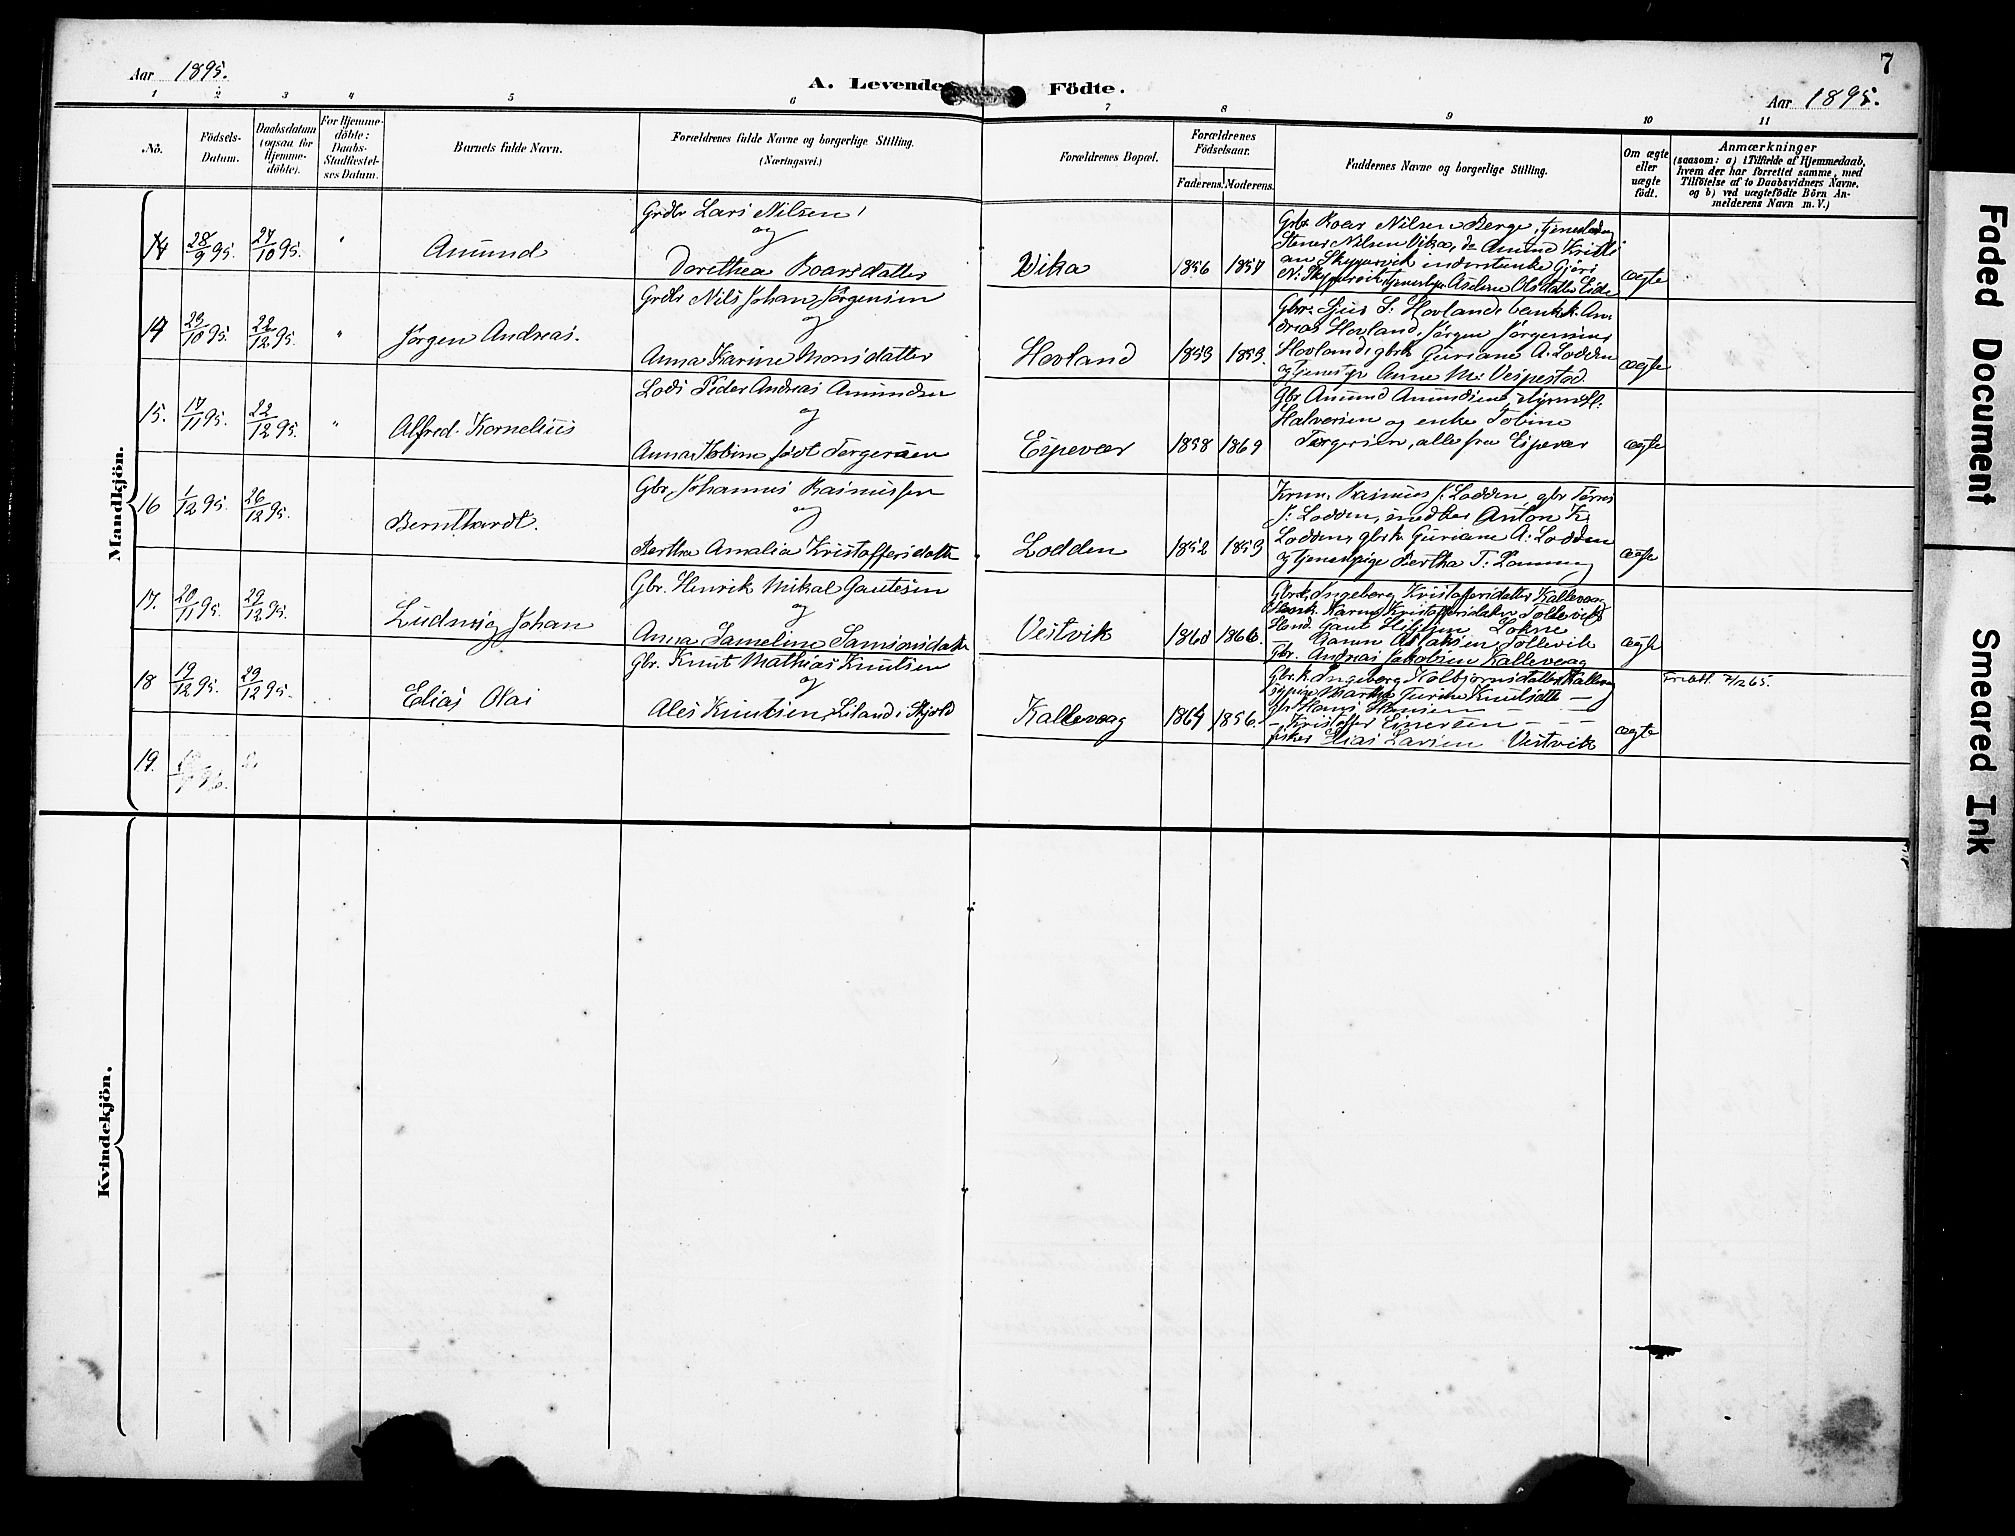 Aar 1895.
A. Levende Födte.
7
Aar 1895.
1 2 3 4 5 6 7 8 9 10 11
No.
Födsels-
Datum.
Daabsdatum
(ogsaa for
Hjemme-
döbte).
For Hjemme-
döbte:
Daabs-
Stadfestel-
ses Datum.
Barnets fulde Navn.
Forældrenes fulde Navne og borgerlige Stilling.
(Næringsvei.)
Forældrenes Bopæl.
Forældrenes
Födselsaar.
Faderens. Moderens.
Faddernes Navne og borgerlige Stilling.
Om ægte
eller
uægte
födt.
Anmærkninger
(saasom: a) i Tilfælde af Hjemmedaab,
hvem der har forrettet samme, med
Tilföielse af to Daabsvidners Navne.
og b) ved uægtefödte Börn An-
melderens Navn m. V.)
Mandkjön.
28/9 95. 27/10 95. "
Amund
Grdbr Lars Nilsen
og
Dorethea Roarsdatter
Vika
1856
Gbr. Roar Nilsen Berge,
Stener Nilsen Vika, do Amund Kristi
an
ægte
29/10 95. 22/12 95. "
Jörgen Andreas.
Grdbr Nils Johan Jörgensen
og
Anna Karine Monsdatter
Hovland
1859 1859.
Hovland,
Andreas Hovland, Jörgen Jörgensen
Hovland, gbrk Guriane A. Lodden
og tjenestp Anne M. Vespestad.
ægte
15. 17/11 95. 22/12 95. "
Alfred Kornelius
Lods Peder Andreas Amundsen
og
Anna Tobine född Torgersen
Espevær
1858 1869
Gbr Amund Amundsen,
Halversen og enke Tobine
Torgersen, alle fra Espevær
ægte
16 1/12 95. 26/12 95.
Bernthardt.
Gbr. Johannes Rasmussen
og
Berthe Amalia Kristoffersdatter
Lodden
1852 1859
Rasmus J. Lodden, gbr
J. Lodden, Anton K.
Lodden, gbrk Guriane A. Lodden
og tjenestpige Bertha T.
ægte
17. 20/11 95. 29/12 95.
Ludvig Johan
Gbr. Henrik Mikal Gautesen
og
Anna Sameline Samsonsdatter
Vestvik
1860 1866.
Gbrk. Ingeberg Kristoffersdatter Kallevaag
Karine Kristoffersdatter Tollevik
Gbr. Andreas Jakobsen Kallevaag
ægte
18 19/12 95. 29/12 95.
Elias Olai
Gbr. Knut Mathias Knutsen
og
Ales Knutsen, Liland i Skjold
Kallevaag
1864 1856.
Gbr.k. Ingeberg Kolbjörnsdatter Kallevaag
Martha Gurine Knutsdatter —
Gbr Hans Hansen —
— Kristoffer Einersen — — —
fisker Elias Larsen Vestvik
ægte
19.
Kvindekjön.
Faded Document
Smeared Ink